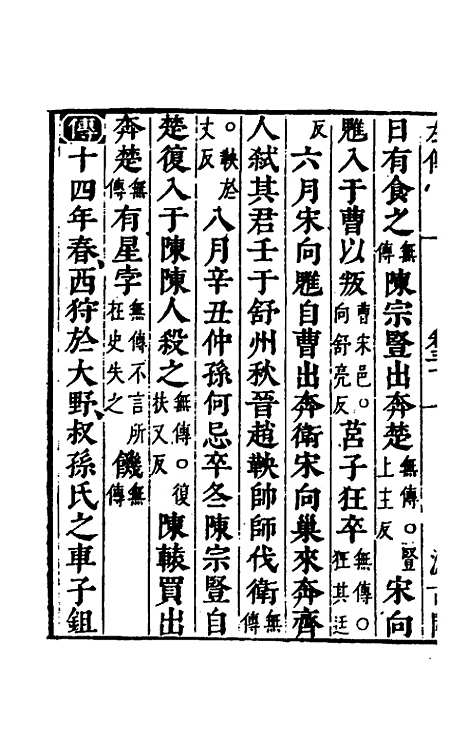 日有食之無傳陳宗豎出奔楚無傳○豎上主反宋向
魋入于曹以叛曹宋邑○向舒亮反莒子狂卒無傳○狂其廷
反六月宋向魋自曹出奔衛宋向巢來奔齊
人弑其君壬于舒州秋晉趙鞅帥師伐衛無傳
○鞅於丈反八月辛丑仲孫何忌卒冬陳宗豎自
楚復入于陳陳人殺之無傳○復扶又反陳轅買出
奔楚無傳有星孛無傳不言所在史失之饑無傳
傳十四年春西狩於大野叔孫氏之車子鉏